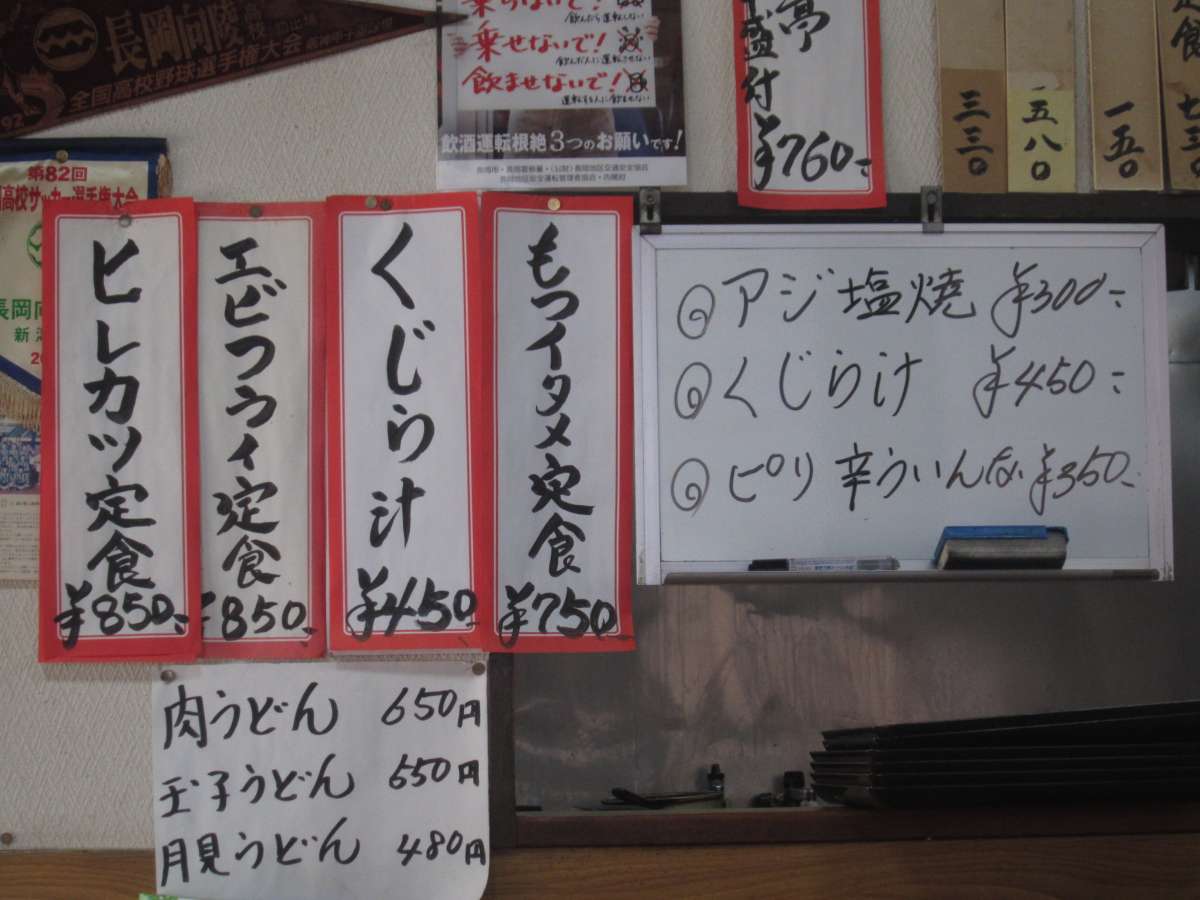 長岡向陵
全国高校野球選手権大会
92
乗せないで!
飲んだ人に運転させない
飲ませないで!
運転する人に飲ませない
飲酒運転根絶3つのお願いです!
亭
盛付
¥760-
三三〇
一五八〇
一五〇
定食
七三〇
第82回
高校サッカー選手権大会
長岡向
新潟
20
ヒレカツ定食
¥850-
エビフライ定食
¥850-
くじら汁
¥450
もつイタメ定食
¥750-
アジ塩焼 ¥300-
くじら汁 ¥450-
ピリ辛ういんな ¥350-
肉うどん 650円
玉子うどん 550円
月見うどん 480円